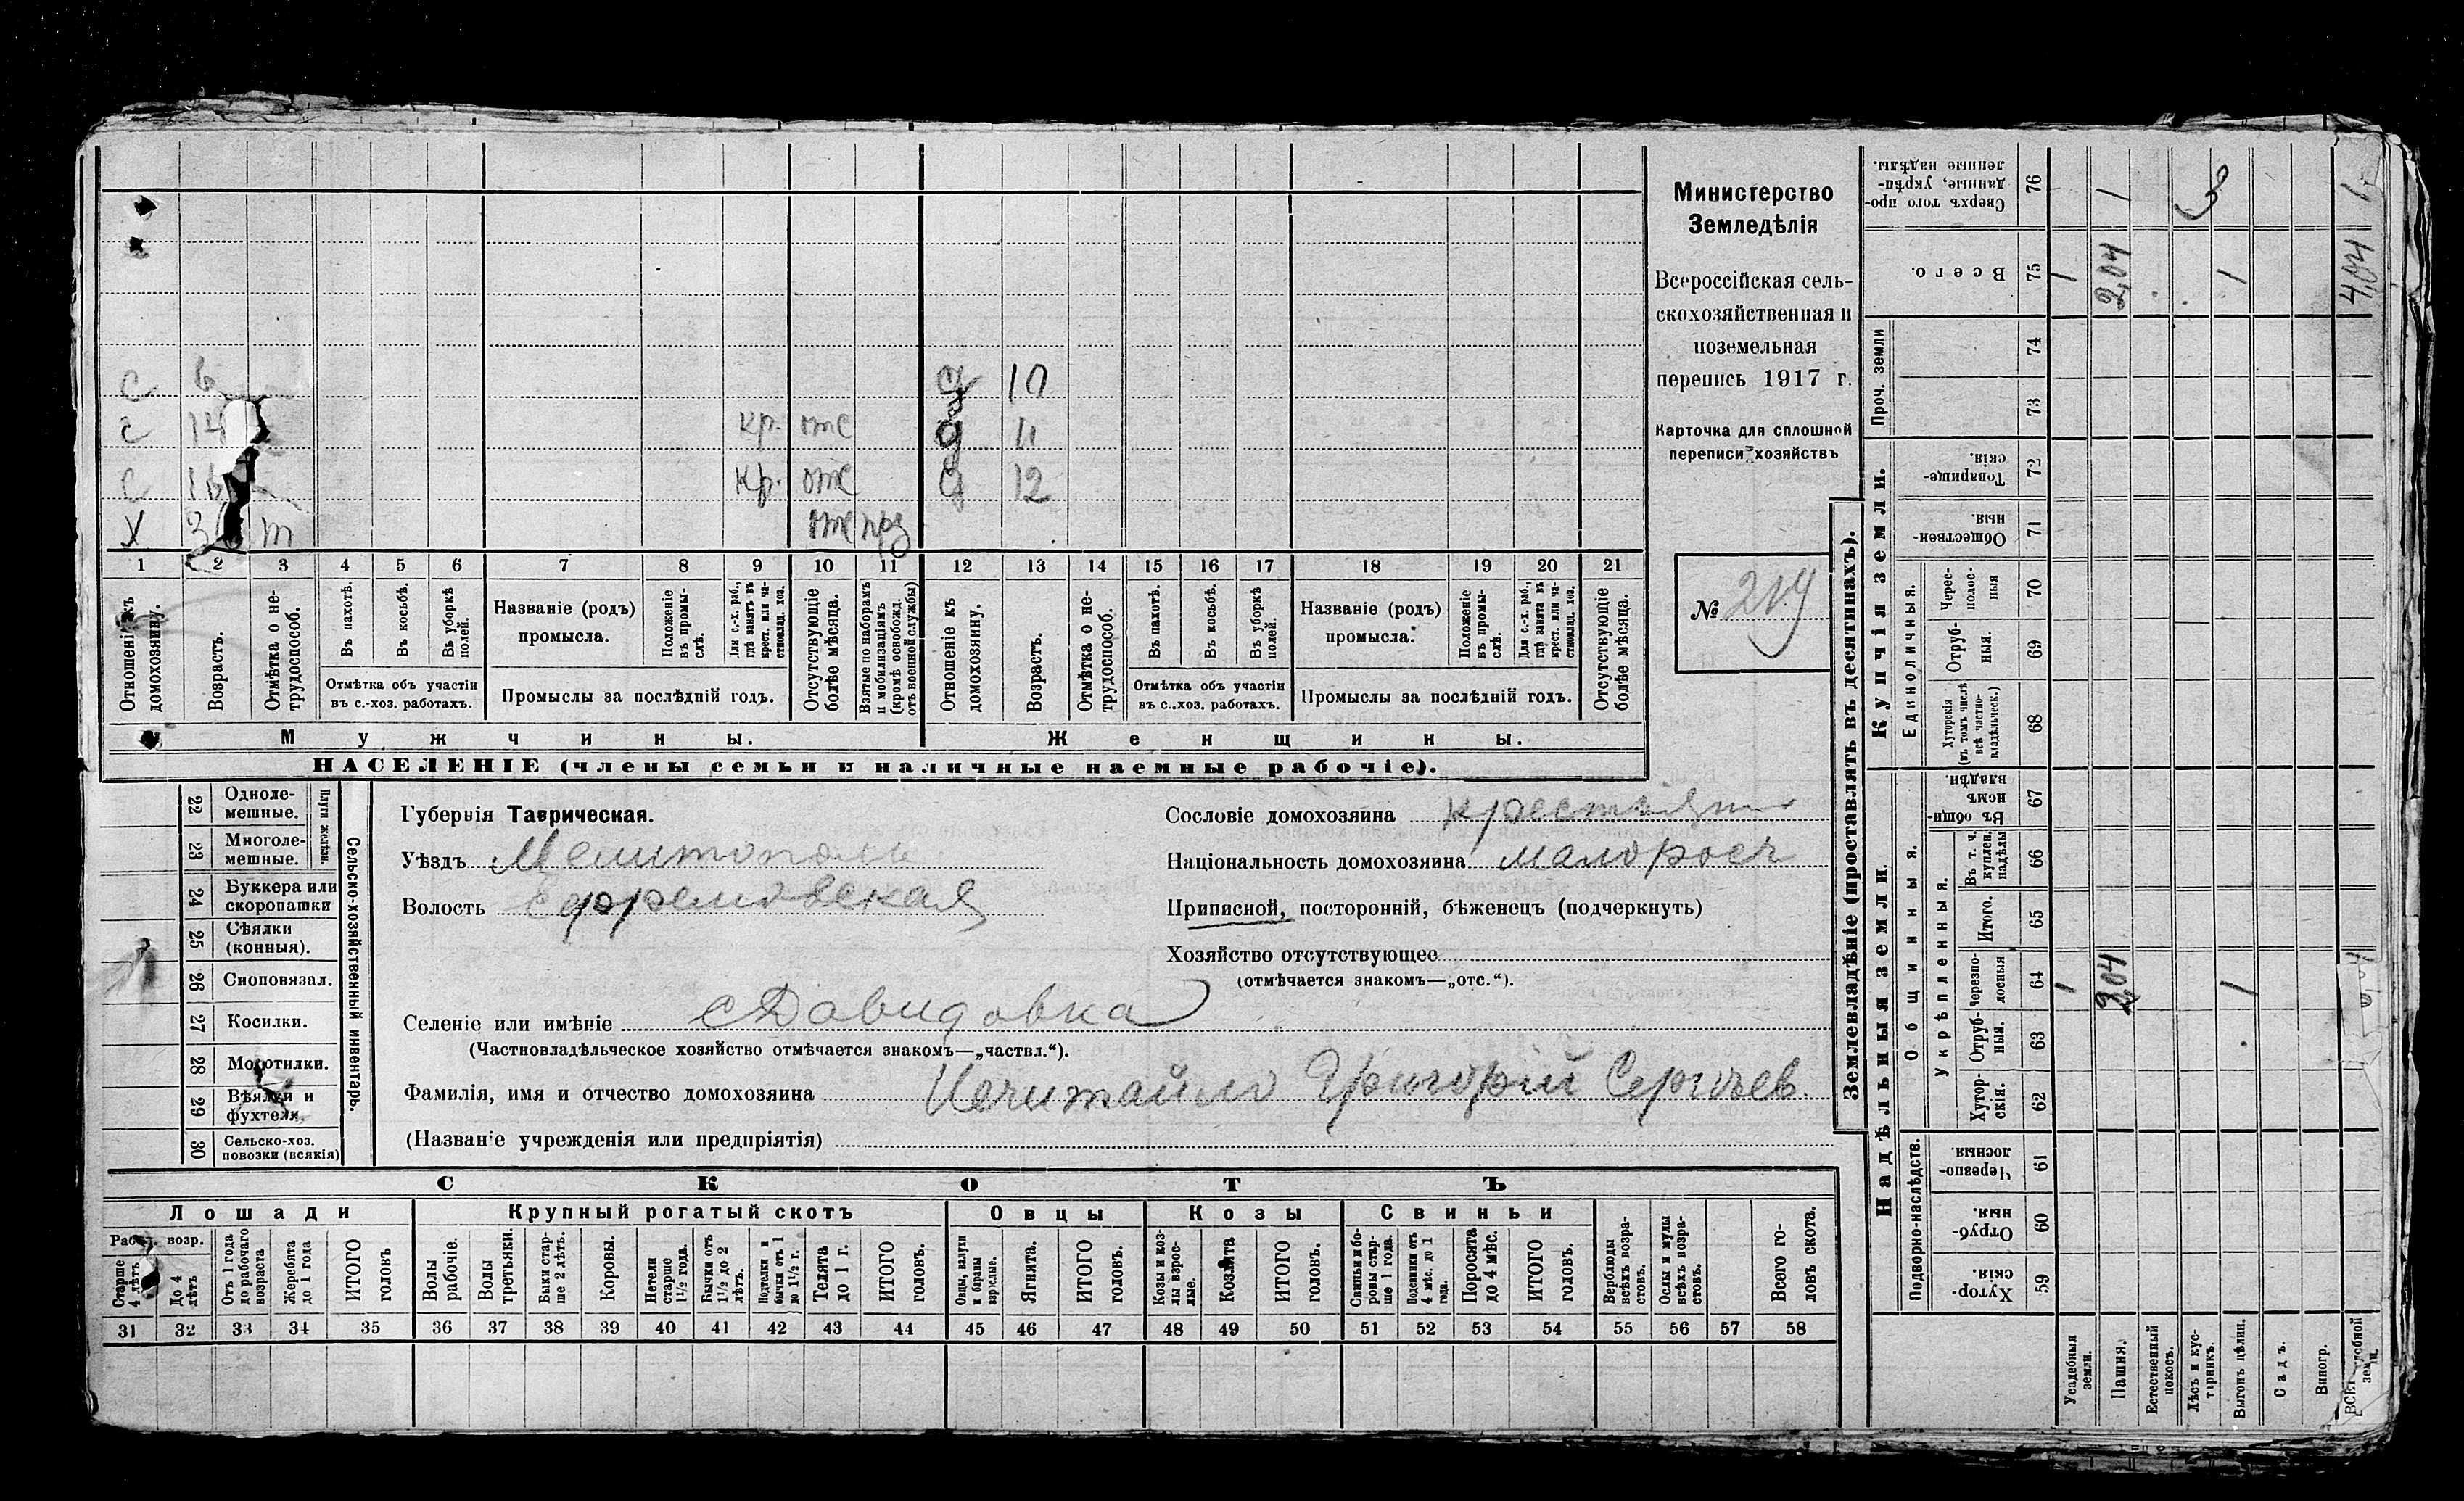 с 6 д 10
с 14 кр. отс д 11
с 16 кр. отс д 12
х т отс
1 2 3 4 5 6 7 8 9 10 11 12 13 14 15 16 17 18 19 20 21
Отношеніе къ домохозяину.
Возрастъ.
Отмѣтка о не-
трудоспособ.
Въ пахотѣ.
Въ косьбѣ.
Въ уборкѣ
полей.
Отмѣтка объ участіи
въ с.-хоз. работахъ.
Названіе (родъ)
промысла.
Положеніе
въ промы-
слѣ.
Для с.-х. раб.,
гдѣ занятъ въ
крест. или ча-
стновлад. хоз.
Промыслы за послѣдній годъ.
Отсутствующіе
болѣе мѣсяца.
Взятые по наборамъ
и мобилизаціямъ
(кромѣ освобожд.
отъ военной службы)
Отношеніе къ
домохозяину.
Возрастъ.
Отмѣтка о не-
трудоспособ.
Въ пахотѣ.
Въ косьбѣ.
Въ уборкѣ
полей.
Отмѣтка объ участіи
въ с.-хоз. работахъ.
Названіе (родъ)
промысла.
Положеніе
въ промы-
слѣ.
Для с.-х. раб.,
гдѣ занята въ
крест. или ча-
стновлад. хоз.
Промыслы за послѣдній годъ.
Отсутствующіе
болѣе мѣсяца.
Мужчины.
Женщины.
НАСЕЛЕНІЕ (члены семьи и наличные наемные рабочіе).
Министерство
Земледѣлія
Всероссійская сель-
скохозяйственная и
поземельная
перепись 1917 г.
Карточка для сплошной
переписи хозяйствъ
№ 219
22 Одноле-
мешные.
23 Многоле-
мешные.
Плуги желѣзн.
24 Буккера или
скоропашки
25 Сѣялки
(конныя).
26 Сноповязал.
27 Косилки.
28 Молотилки.
29 Вѣялки и
фухтеля.
30 Сельско-хоз.
повозки (всякія)
Сельско-хозяйственный инвентарь.
Губернія Таврическая.
Уѣздъ Мелитополь
Волость Ефремовская
Селеніе или имѣніе с Давидовка
(Частновладѣльческое хозяйство отмѣчается знакомъ—„частвл.“).
Фамилія, имя и отчество домохозяина Нечитайло Григорій Сергѣев.
(Названіе учрежденія или предпріятія)
Сословіе домохозяина крестьянин
Національность домохозяина малороссъ
Приписной, посторонній, бѣженецъ (подчеркнуть)
Хозяйство отсутствующее
(отмѣчается знакомъ—„отс.“).
СКОТЪ
Лошади
Крупный рогатый скотъ
Овцы
Козы
Свиньи
Рабоч. возр.
Старше
4 лѣтъ
До 4
лѣтъ
Отъ 1 года
до рабочаго
возраста
Жеребята
до 1 года
ИТОГО
головъ
Волы
рабочіе.
Волы
третьяки.
Быки стар-
ше 2 лѣтъ.
Коровы.
Нетели
старше
1½ года.
Бычки отъ
1½ до 2
лѣтъ.
Подтелки и
бычки отъ 1
до 1½ г.
Телята
до 1 г.
ИТОГО
головъ.
Овцы, валухи
и бараны
взрослые.
Ягнята.
ИТОГО
головъ.
Козы и коз-
лы взрос-
лые.
Козлята
ИТОГО
головъ.
Свиньи и бо-
ровы стар-
ше 1 года.
Подсвинки отъ
4 мѣс. до 1
года.
Поросята
до 4 мѣс.
ИТОГО
головъ.
Верблюды
всѣхъ возра-
стовъ.
Ослы и мулы
всѣхъ возра-
стовъ.
Всего го-
ловъ скота.
31 32 33 34 35 36 37 38 39 40 41 42 43 44 45 46 47 48 49 50 51 52 53 54 55 56 57 58
Землевладѣніе (проставлять въ десятинахъ).
Надѣльныя земли.
Купчія земли.
Проч. земли
Подворно-наслѣдств.
Общинныя.
Укрѣпленныя.
Единоличныя.
Сверхъ того про-
данные, укрѣп-
ленные надѣлы.
76 1 3 1
Всего.
75 1 2,04 1 4,04
74
73
Товарище-
скія.
72
Обществен-
ныя.
71
Черес-
полос-
ныя
70
Отруб-
ныя.
69
Хуторскія
(въ томъ числѣ
всѣ частно-
владѣльческ.)
68
Въ общин-
номъ
владѣн.
67
Въ т. ч.
куплен.
надѣлы
66
Итого.
65
Черезпо-
лосныя
64 1 2,04 1
Отруб-
ныя.
63
Хутор-
скія.
62
Черезпо-
лосныя.
61
Отруб-
ныя.
60
Хутор-
скія.
59
Усадебныя
земли.
Пашня.
Естественный
покосъ.
Лѣсъ и кус-
тарникъ.
Выгонъ цѣлин.
Садъ.
Виногр.